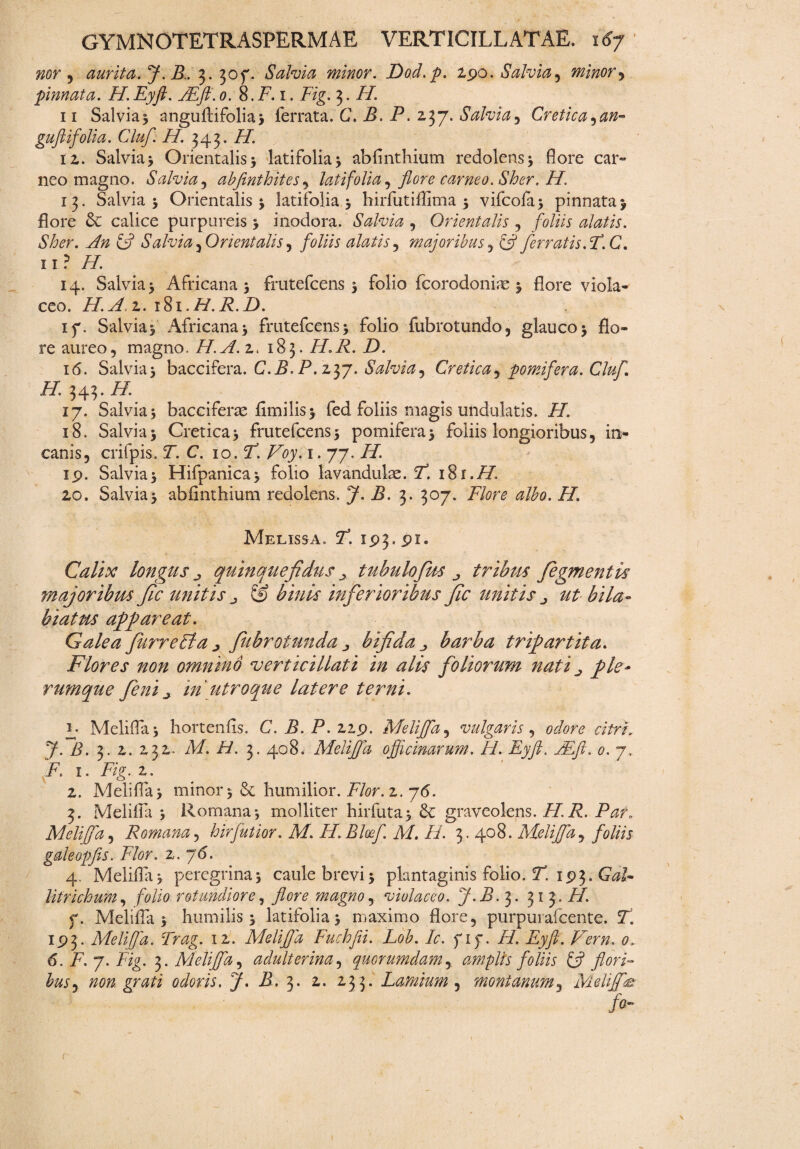 GYMNOTETRASPERMAE VERTICILLATAE. 167
nor, aurita. J. B. 3. 305. Salvia minor. Dod. p. 290. Salvia, minor,
pinnata. H. Eyſt. Æſt. o. 8. F. 1. Fig. 3. H.
11 Salvia; anguſtifolia; ſerrata. C. B. P. 237. Salvia, Cretica, an-
guſtifolia. Cluſ. H. 343. H.
12. Salvia; Orientalis; latifolia; abſinthium redolens; flore car-
neo magno. Salvia, abſinthites, latifolia, flore carneo. Sher. H.
13. Salvia; Orientalis; latifolia; hirſutiſſima; viſcoſa; pinnata;
flore & calice purpureis; inodora. Salvia, Orientalis, foliis alatis.
Sher. An & Salvia, Orientalis, foliis alatis, majoribus, & ſerratis. T. C.
11? H.
14. Salvia; Africana; fruteſcens; folio ſcorodoniæ; flore viola-
ceo. H. A. 2. 181. H. R. D.
15. Salvia; Africana; fruteſcens; folio ſubrotundo, glauco; flo-
re aureo, magno. H. A. 2. 183. H. R. D.
16. Salvia; baccifera. C. B. P. 237. Salvia, Cretica, pomifera. Cluſ.
H. 343. H.
17. Salvia; bacciferæ ſimilis; ſed foliis magis undulatis. H.
18. Salvia; Cretica; fruteſcens; pomifera; foliis longioribus, in-
canis, criſpis. T. C. 10. T. Voy. 1. 77. H.
19. Salvia; Hiſpanica; folio lavandulæ. T. 181. H.
20. Salvia; abſinthium redolens. J. B. 3. 307. Flore albo. H.
MELISSA. T. 193. 91.
Calix longus, quinquefidus, tubuloſus, tribus ſegmentis
majoribus ſic unitis, & binis inferioribus ſic unitis, ut bila-
biatus appareat.
Galea ſurrecta, ſubrotunda, bifida, barba tripartita.
Flores non omninò verticillati in alis foliorum nati, ple-
rumque ſeni, in utroque latere terni.
1. Meliſſa; hortenſis. C. B. P. 229. Meliſſa, vulgaris, odore citri.
J. B. 3. 2. 232. M. H. 3. 408. Meliſſa officinarum. H. Eyſt. Æſt. o. 7.
F. 1. Fig. 2.
2. Meliſſa; minor; & humilior. Flor. 2. 76.
3. Meliſſa; Romana; molliter hirſuta; & graveolens. H. R. Par.
Meliſſa, Romana, hirſutior. M. H. Blæſ. M. H. 3. 408. Meliſſa, foliis
galeopſis. Flor. 2. 76.
4. Meliſſa; peregrina; caule brevi; plantaginis folio. T. 193. Gal-
litrichum, folio rotundiore, flore magno, violaceo. J. B. 3. 313. H.
5. Meliſſa; humilis; latifolia; maximo flore, purpuraſcente. T.
193. Meliſſa. Trag. 12. Meliſſa Fuchſii. Lob. Ic. 515. H. Eyſt. Vern. o.
6. F. 7. Fig. 3. Meliſſa, adulterina, quorumdam, amplis foliis & flori-
bus, non grati odoris. J. B. 3. 2. 233. Lamium, montanum, Meliſſæ
fo-